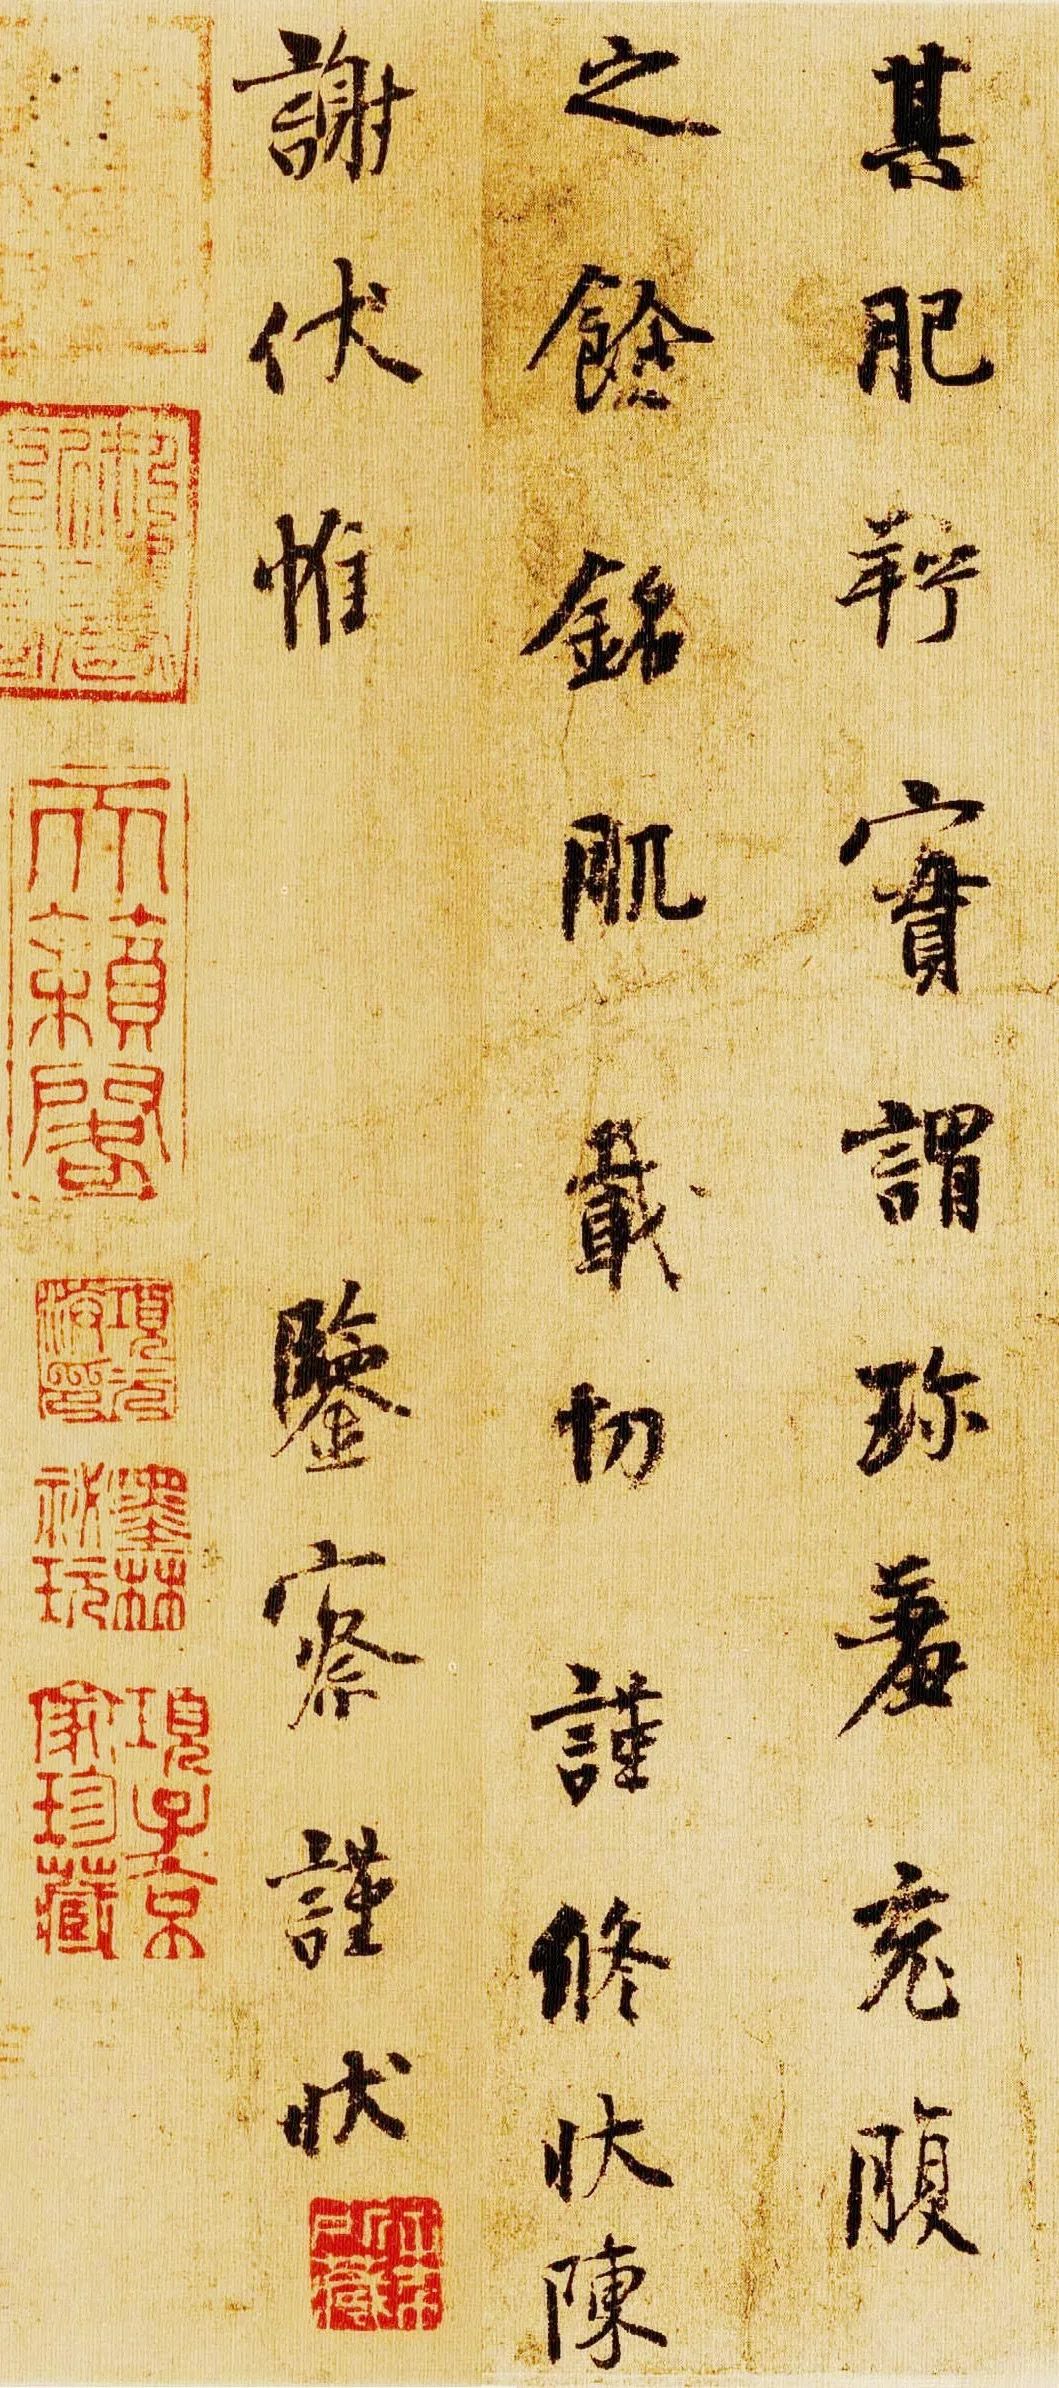 其肥羜實謂珎羞充腹
之餘銘肌載切謹脩狀陳
謝伏惟
鑒察謹狀
天籟閣
項元汴印
墨林祕玩
項子京家珍藏